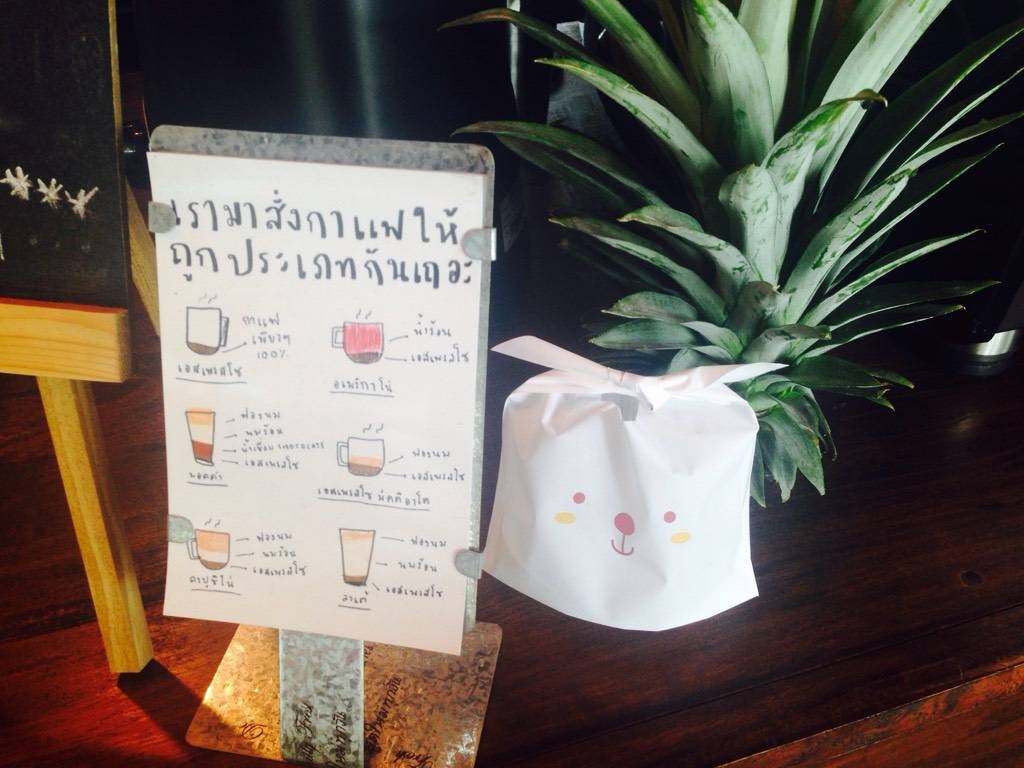 เรามาสั่งกาแฟให้
ถูกประเภทกันเถอะ
กาแฟ
เพียวๆ
100%
เอสเพรสโซ
น้ำร้อน
เอสเพรสโซ
อเมริกาโน่
ฟองนม
นมร้อน
น้ำเชื่อม
เอสเพรสโซ
มอคค่า
ฟองนม
เอสเพรสโซ
เอสเพรสโซ มัคคิอาโต
ฟองนม
นมร้อน
เอสเพรสโซ
คาปูชิโน่
ฟองนม
นมร้อน
เอสเพรสโซ
ลาเต้